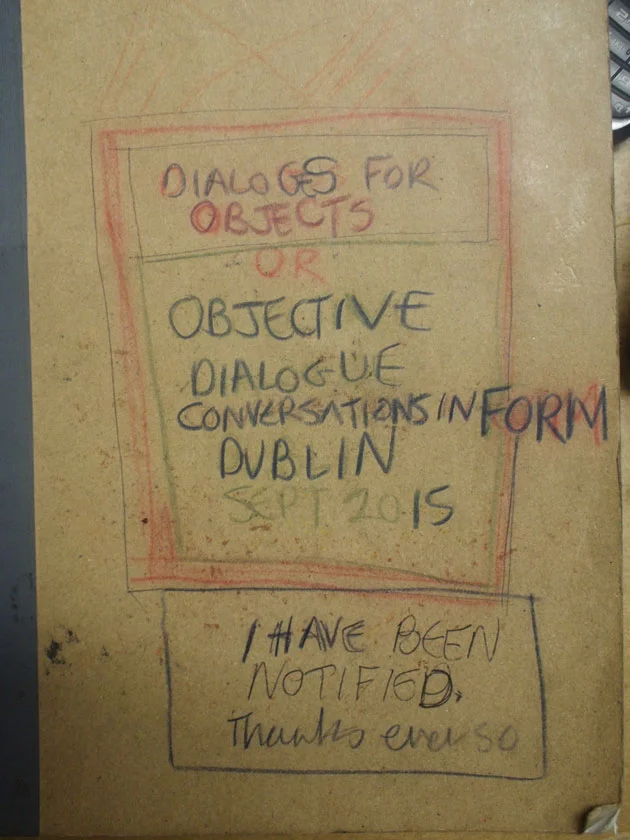 DIALOGES FOR
OBJECTS
OR
OBJECTIVE
DIALOGUE
CONVERSATIONS IN FORM
DUBLIN
SEPT 2015
I HAVE BEEN
NOTIFIED.
Thanks ever so